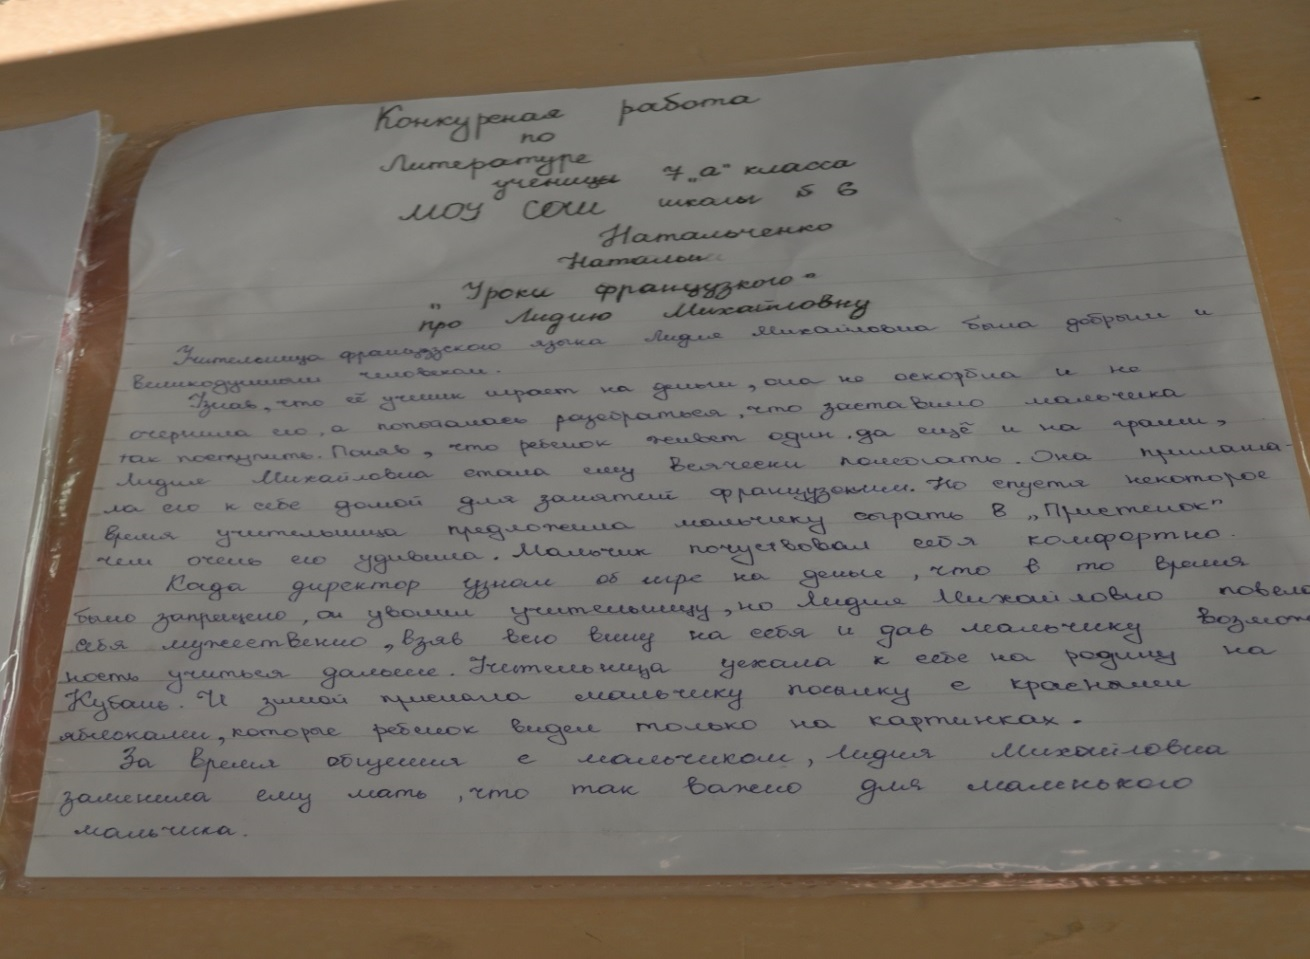 Конкурсная работа
по
Литературе
ученицы 7 „а“ класса
МОУ СОШ школы № 6
Натальченко
Натальи
„Уроки французкого“
про Лидию Михайловну
Учительница французского языка Лидия Михайловна была добрым и
великодушным человеком.
Узнав, что её ученик играет на деньги, она не оскорбила и не
очернила его, а попыталась разобраться, что заставило мальчика
так поступить. Поняв, что ребенок живет один, да ещё и на грани,
Лидия Михайловна стала ему всячески помогать. Она приглаша-
ла его к себе домой для занятий французским. Но спустя некоторое
время учительница предложила мальчику сыграть в „Пристенок“
чем очень его удивила. Мальчик почуствовал себя комфортно.
Када директор узнал об игре на деньги, что в то время
было запрещено, он уволил учительницу, но Лидия Михайловна повела
себя мужественно, взяв всю вину на себя и дав мальчику возмож
ность учиться дальше. Учительница уехала к себе на родину на
Кубань. И зимой прислала мальчику посылку с красными
яблоками, которые ребенок видел только на картинках.
За время общения с мальчиком, Лидия Михайловна
заменила ему мать, что так важно для маленького
мальчика.